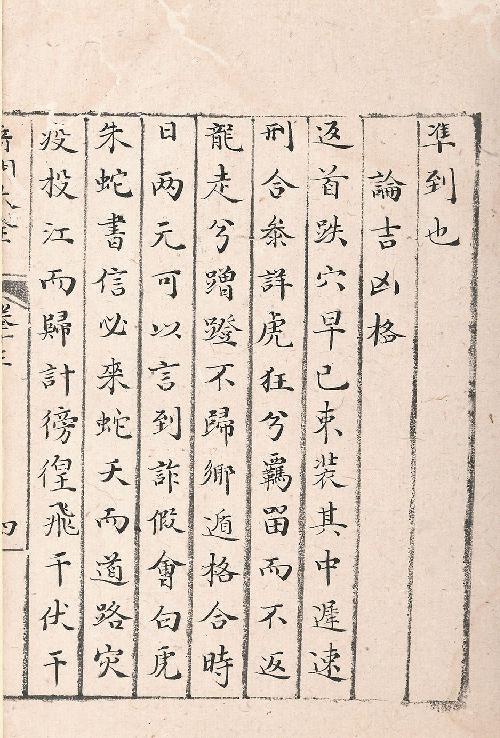 凖到也
論吉凶格
返首跌穴早已束装其中遲速
刑合叅詳虎狂兮羈留而不返
龍走兮蹭蹬不歸鄉遁格合時
日两元可以言到詐假會白虎
朱蛇書信必來蛇夭而道路灾
疫投江而歸計徬徨飛干伏干